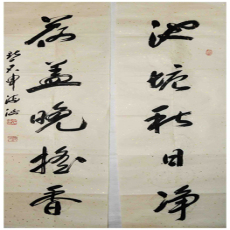 池塘秋日净
荷盖晚摇香